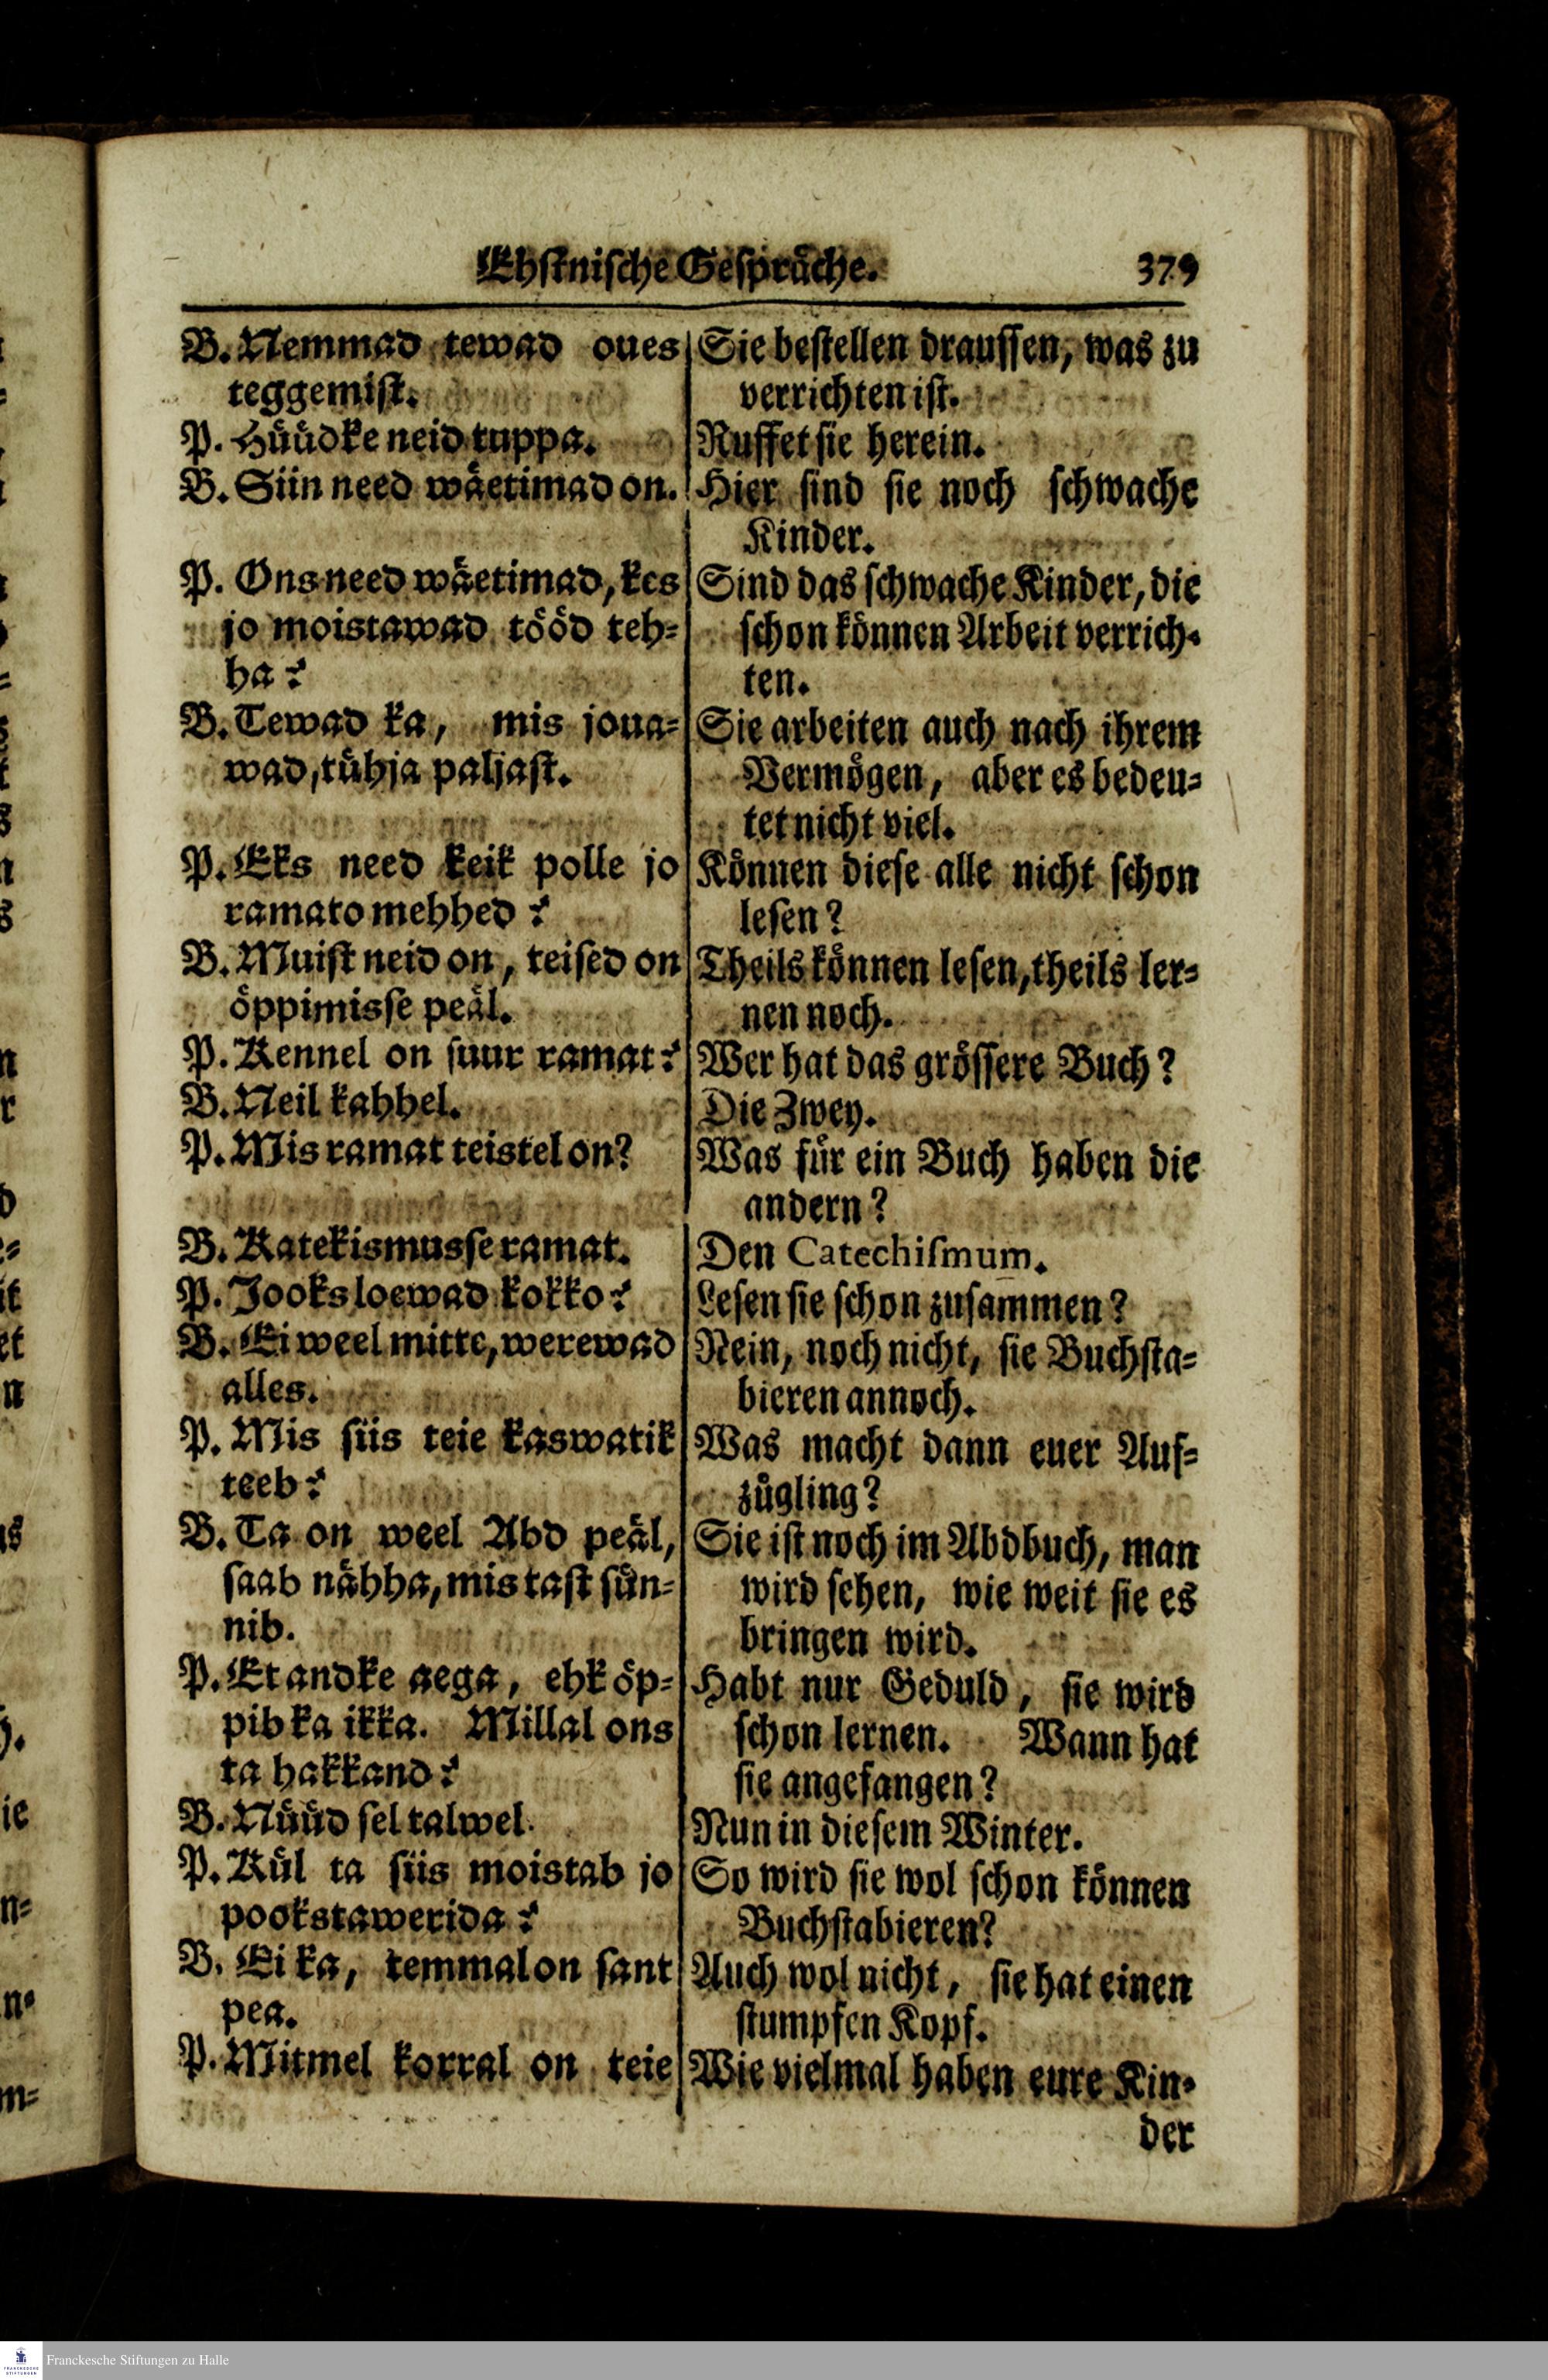 Ehstnische Gespräche. 379
B. Nemmad tewad oues
teggemist.
P. Hüüdke neid tuppa.
B. Siin need wäetimad on.
P. Ons need wäetimad, kes
jo moistawad tööd teh-
ha?
B. Tewad ka, mis joua-
wad, tühja paljast.
P. Eks need keik polle jo
ramato mehhed?
B. Muist neid on, teised on
öppimisse peäl.
P. Kennel on suur ramat?
B. Neil kahhel.
P. Mis ramat teistel on?
B. Katekismusse ramat.
P. Jooks loewad kokko?
B. Ei weel mitte, werewad
alles.
P. Mis siis teie kaswatik
teeb?
B. Ta on weel Abd peäl,
saab nähha, mis tast sün-
nib.
P. Et andke aega, ehk öp-
pib ka ikka. Millal ons
ta hakkand?
B. Nüüd sel talwel.
P. Kül ta siis moistab jo
pookstawerida?
B. Ei ka, temmal on sant
pea.
P. Mitmel korral on teie
Sie bestellen draussen, was zu
verrichten ist.
Ruffet sie herein.
Hier sind sie noch schwache
Kinder.
Sind das schwache Kinder, die
schon können Arbeit verrich-
ten.
Sie arbeiten auch nach ihrem
Vermögen, aber es bedeu-
tet nicht viel.
Können diese alle nicht schon
lesen?
Theils können lesen, theils ler-
nen noch.
Wer hat das grössere Buch?
Die Zwey.
Was für ein Buch haben die
andern?
Den Catechismum.
Lesen sie schon zusammen?
Nein, noch nicht, sie Buchsta-
bieren annoch.
Was macht dann euer Auf-
zügling?
Sie ist noch im Abdbuch, man
wird sehen, wie weit sie es
bringen wird.
Habt nur Geduld, sie wird
schon lernen. Wann hat
sie angefangen?
Nun in diesem Winter.
So wird sie wol schon können
Buchstabieren?
Auch wol nicht, sie hat einen
stumpfen Kopf.
Wie vielmal haben eure Kin-
der
Franckesche Stiftungen zu Halle